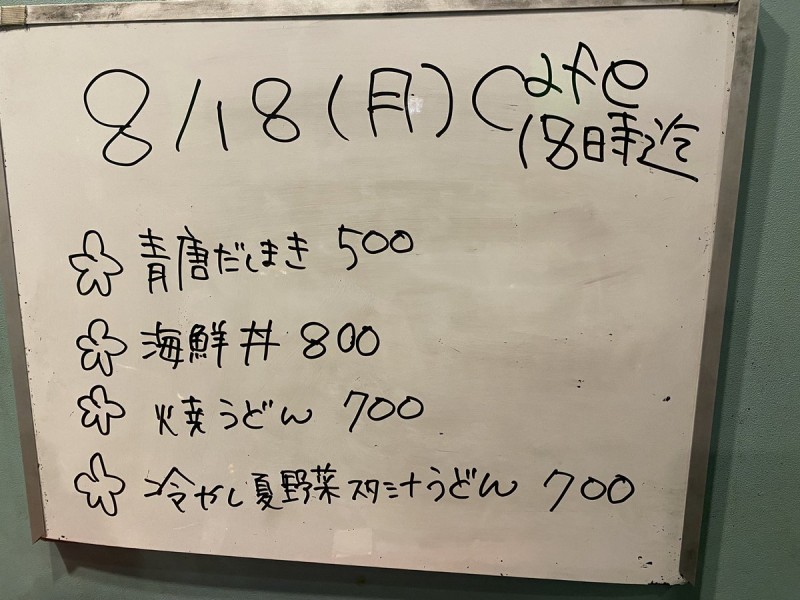 8/18(月) Cafe
18時迄
青唐だしまき 500
海鮮丼 800
焼うどん 700
冷やし夏野菜スタミナうどん 700